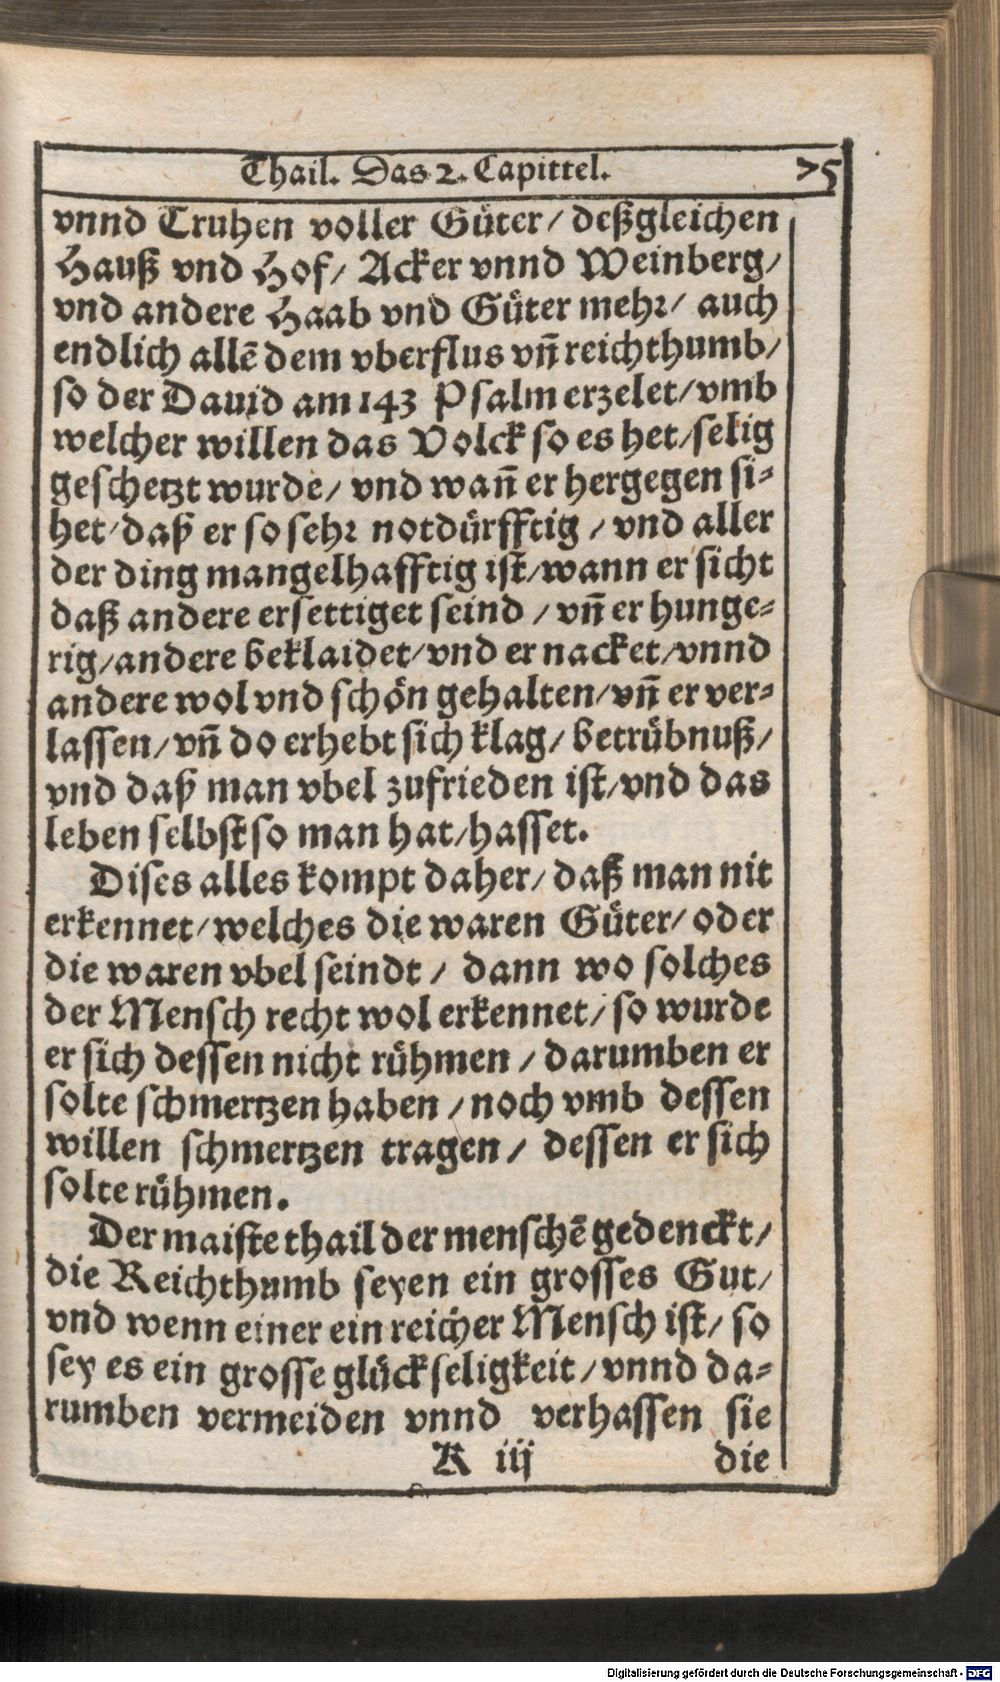 Thail. Das 2. Capittel. 75
vnnd Truhen voller Güter/ deßgleichen
Hauß vnd Hof/ Acker vnnd Weinberg/
vnd andere Haab vnd Güter mehr/ auch
endlich allē dem vberflus vn̄ reichthumb/
so der Dauid am 143 Psalm erzelet/ vmb
welcher willen das Volck so es het/ selig
geschetzt wurde/ vnd wan̄ er hergegen si-
het/ daß er so sehr notdürfftig/ vnd aller
der ding mangelhafftig ist/ wann er sicht
daß andere ersettiget seind/ vn̄ er hunge-
rig/ andere beklaidet/ vnd er nacket/ vnnd
andere wol vnd schön gehalten/ vn̄ er ver-
lassen/ vn̄ do erhebt sich klag/ betrübnuß/
vnd daß man vbel zufrieden ist/ vnd das
leben selbst so man hat/ hasset.
Dises alles kompt daher/ daß man nit
erkennet/ welches die waren Güter/ oder
die waren vbel seindt/ dann wo solches
der Mensch recht wol erkennet/ so wurde
er sich dessen nicht rühmen/ darumben er
solte schmertzen haben/ noch vmb dessen
willen schmertzen tragen/ dessen er sich
solte rühmen.
Der maiste thail der menschē gedenckt/
die Reichthumb seyen ein grosses Gut/
vnd wenn einer ein reicher Mensch ist/ so
sey es ein grosse glückseligkeit/ vnnd da-
rumben vermeiden vnnd verhassen sie
K iij die
Digitalisierung gefördert durch die Deutsche Forschungsgemeinschaft - DFG